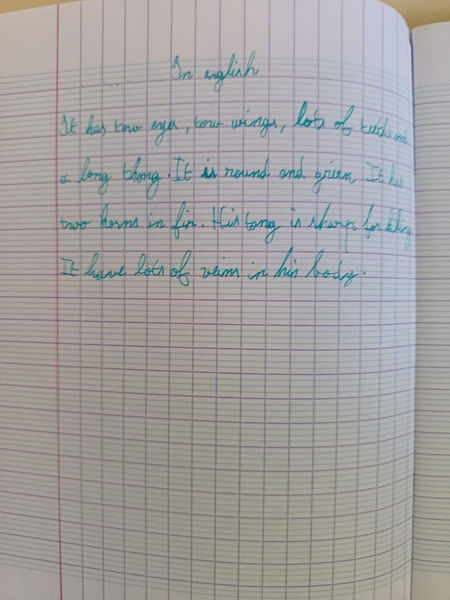 In english
It has tow eyes, tow wings, lots of teeth and
a long thong. It is round and grien. It has
two horns in fir. His tong is sharp for
It have lots of veins in his body.